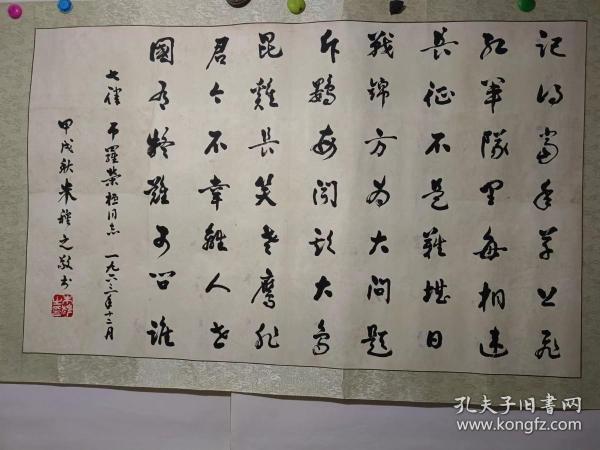 记得当年草上飞
红军队里每相违
长征不是难堪日
战锦方为大问题
斥鷃每闻欺大鸟
昆鸡长笑老鹰非
君今不幸离人世
國有疑难可问谁
七律 吊羅荣桓同志 一九六三年十二月
甲戌秋 朱 之敬书
孔夫子旧书网
www.kongfz.com